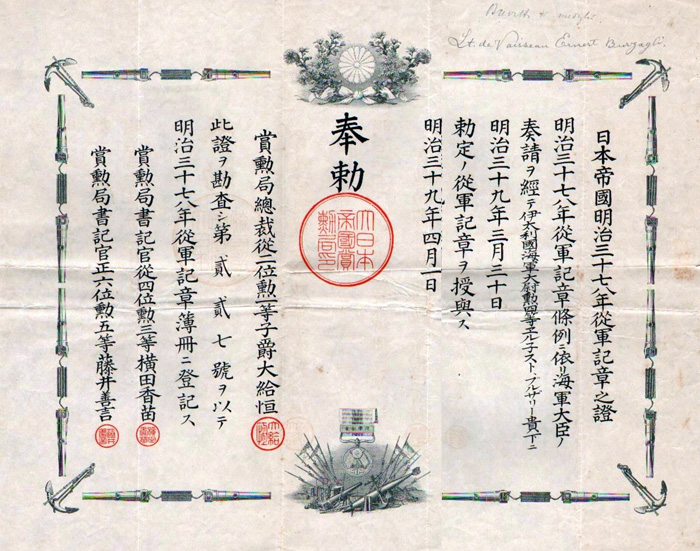 Lt. de Vaisseau Ernest Burzagli.
日本帝國明治三十七八年從軍記章之證
明治三十七八年從軍記章條例ニ依リ海軍大臣ノ
奏請ヲ經テ伊太利國海軍大尉勲四等エルネスト、ブルザリー貴下ニ
明治三十九年三月三十日
勅定ノ從軍記章ヲ授與ス
明治三十九年四月一日
奉勅
大日本
帝國賞
勲局印
賞勲局總裁從二位勲一等子爵大給恒
此證ヲ勘査シ第貳貳七號ヲ以テ
明治三十七八年從軍記章簿冊ニ登記ス
賞勲局書記官從四位勲三等横田香苗
賞勲局書記官正六位勲五等藤井善言